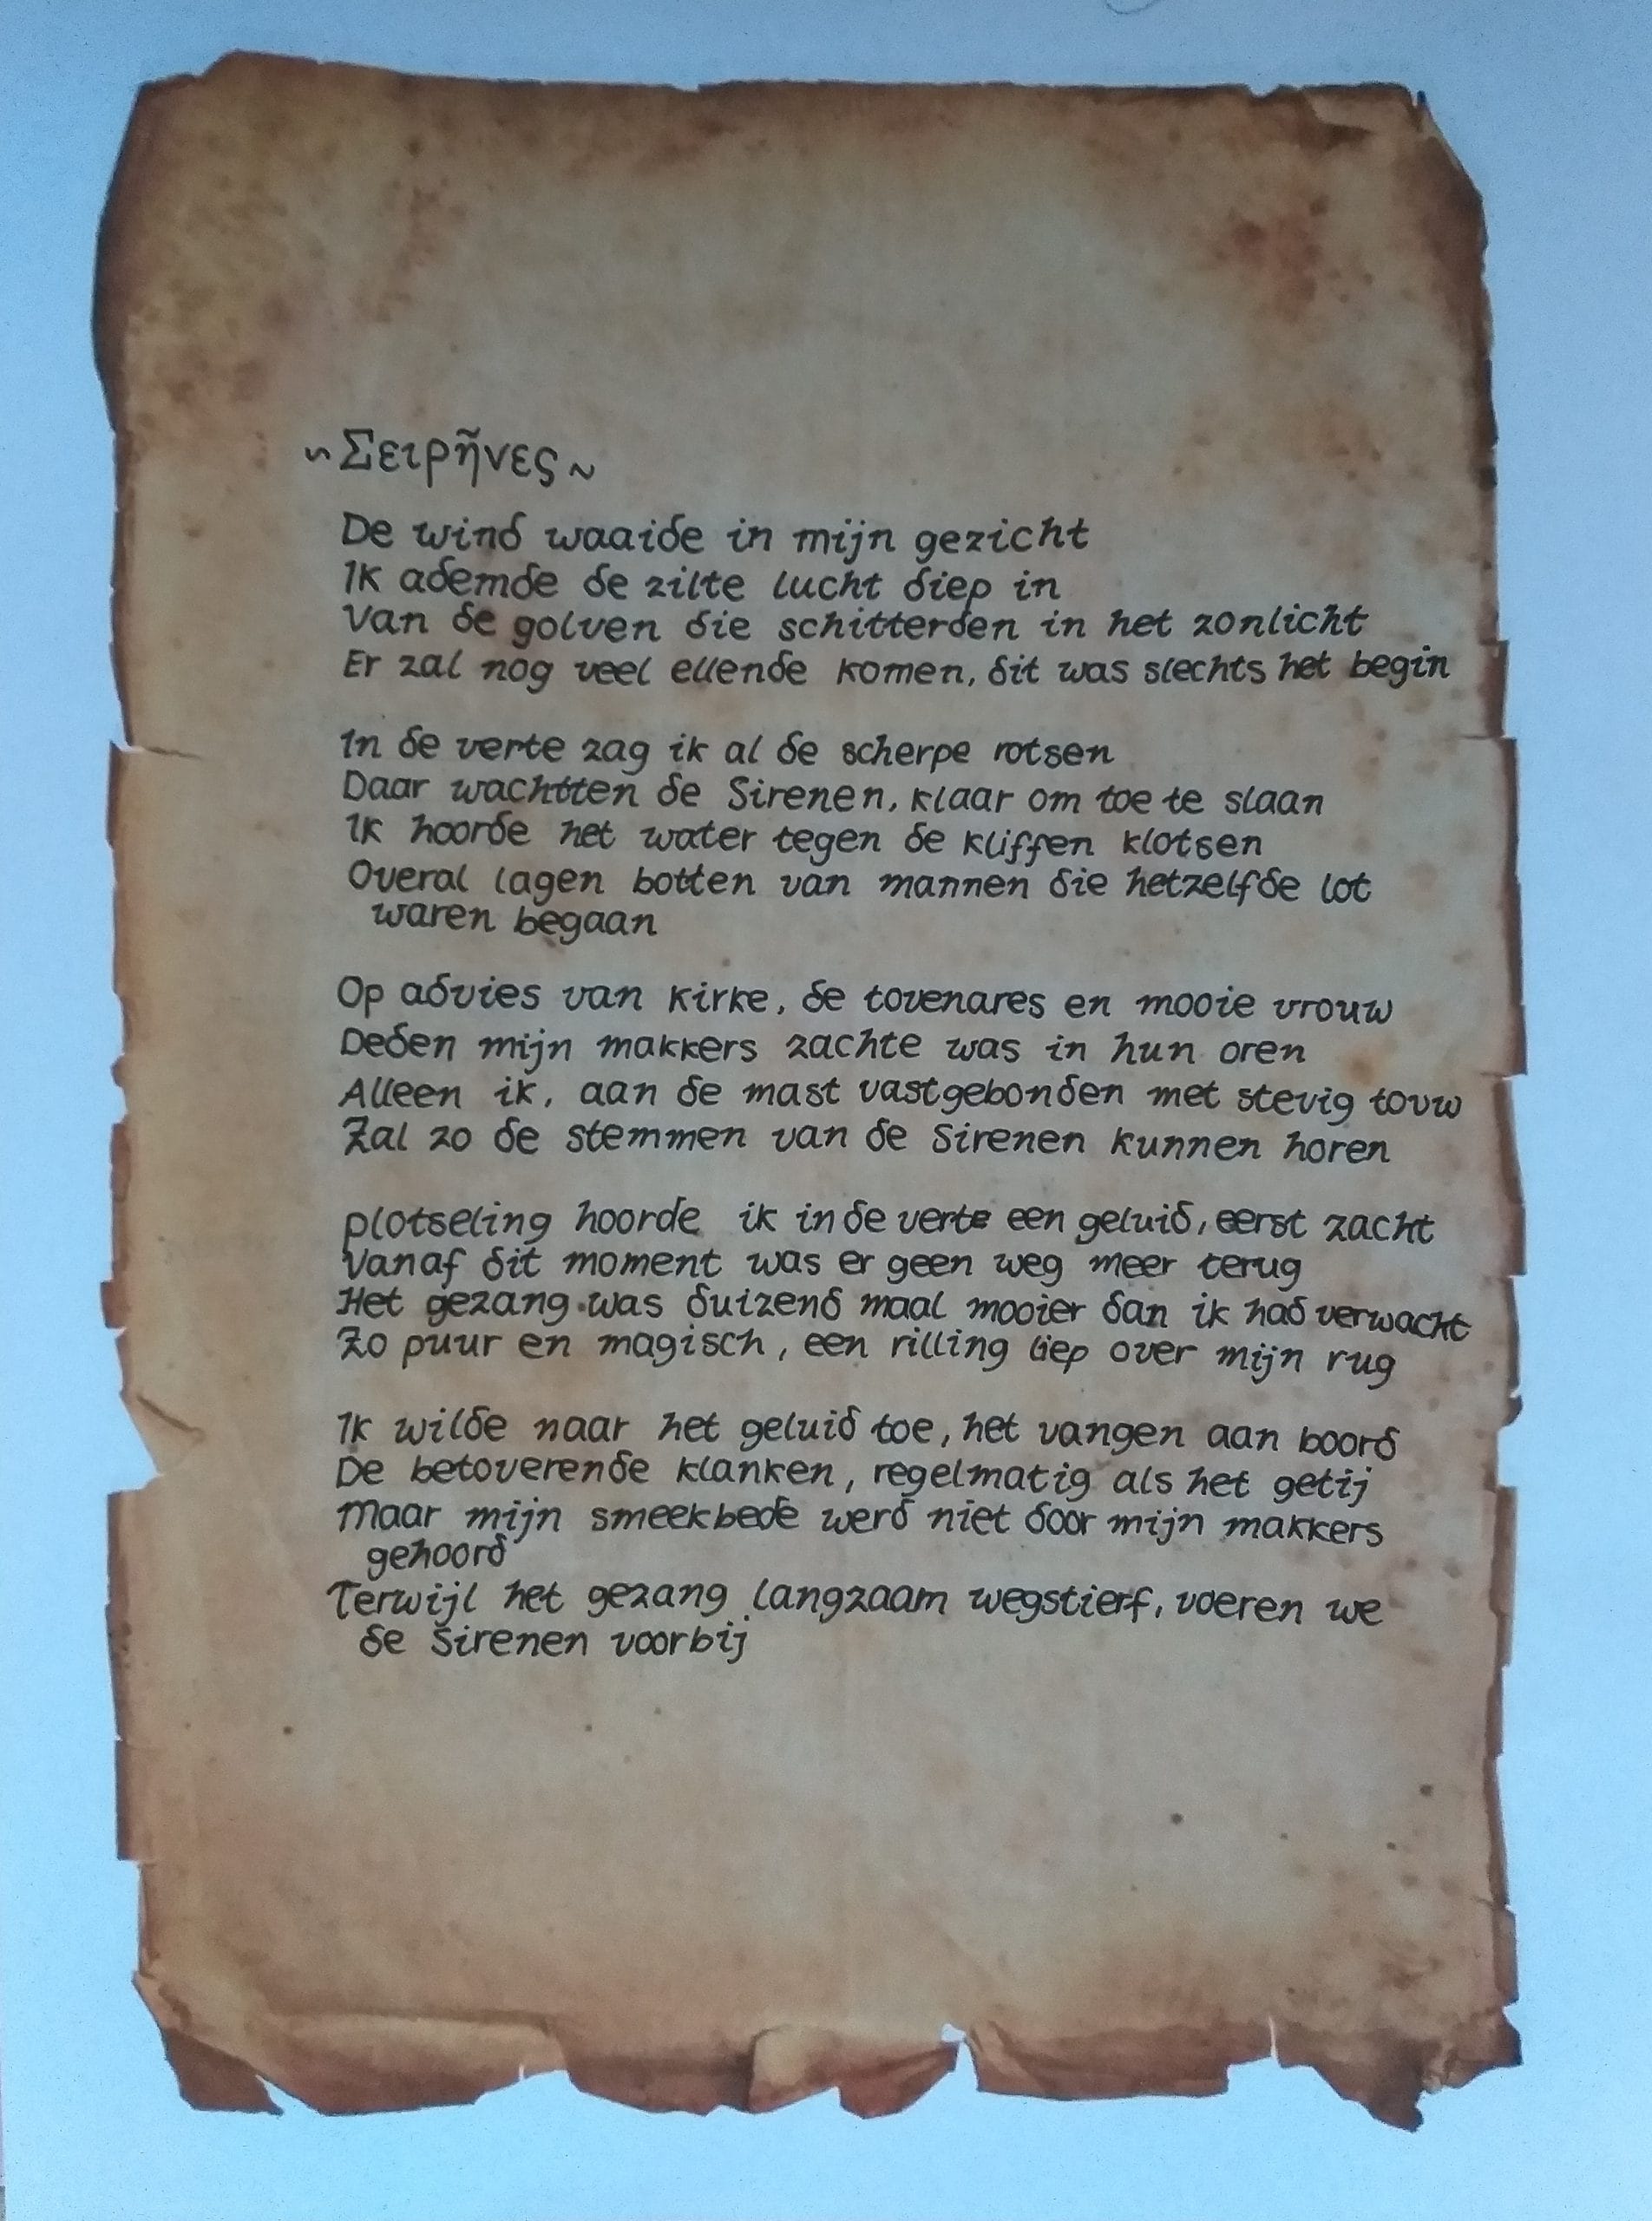 ~ Σειρῆνες ~
De wind waaide in mijn gezicht
Ik ademde de zilte lucht diep in
Van de golven die schitterden in het zonlicht
Er zal nog veel ellende komen, dit was slechts het begin
In de verte zag ik al de scherpe rotsen
Daar wachtten de Sirenen, klaar om toe te slaan
Ik hoorde het water tegen de kliffen klotsen
Overal lagen botten van mannen die hetzelfde lot
waren begaan
Op advies van Kirke, de tovenares en mooie vrouw
Deden mijn makkers zachte was in hun oren
Alleen ik, aan de mast vastgebonden met stevig touw
Zal zo de stemmen van de Sirenen kunnen horen
Plotseling hoorde ik in de verte een geluid, eerst zacht
Vanaf dit moment was er geen weg meer terug
Het gezang was duizend maal mooier dan ik had verwacht
Zo puur en magisch, een rilling liep over mijn rug
Ik wilde naar het geluid toe, het vangen aan boord
De betoverende klanken, regelmatig als het getij
Maar mijn smeekbede werd niet door mijn makkers
gehoord
Terwijl het gezang langzaam wegstierf, voeren we
de Sirenen voorbij